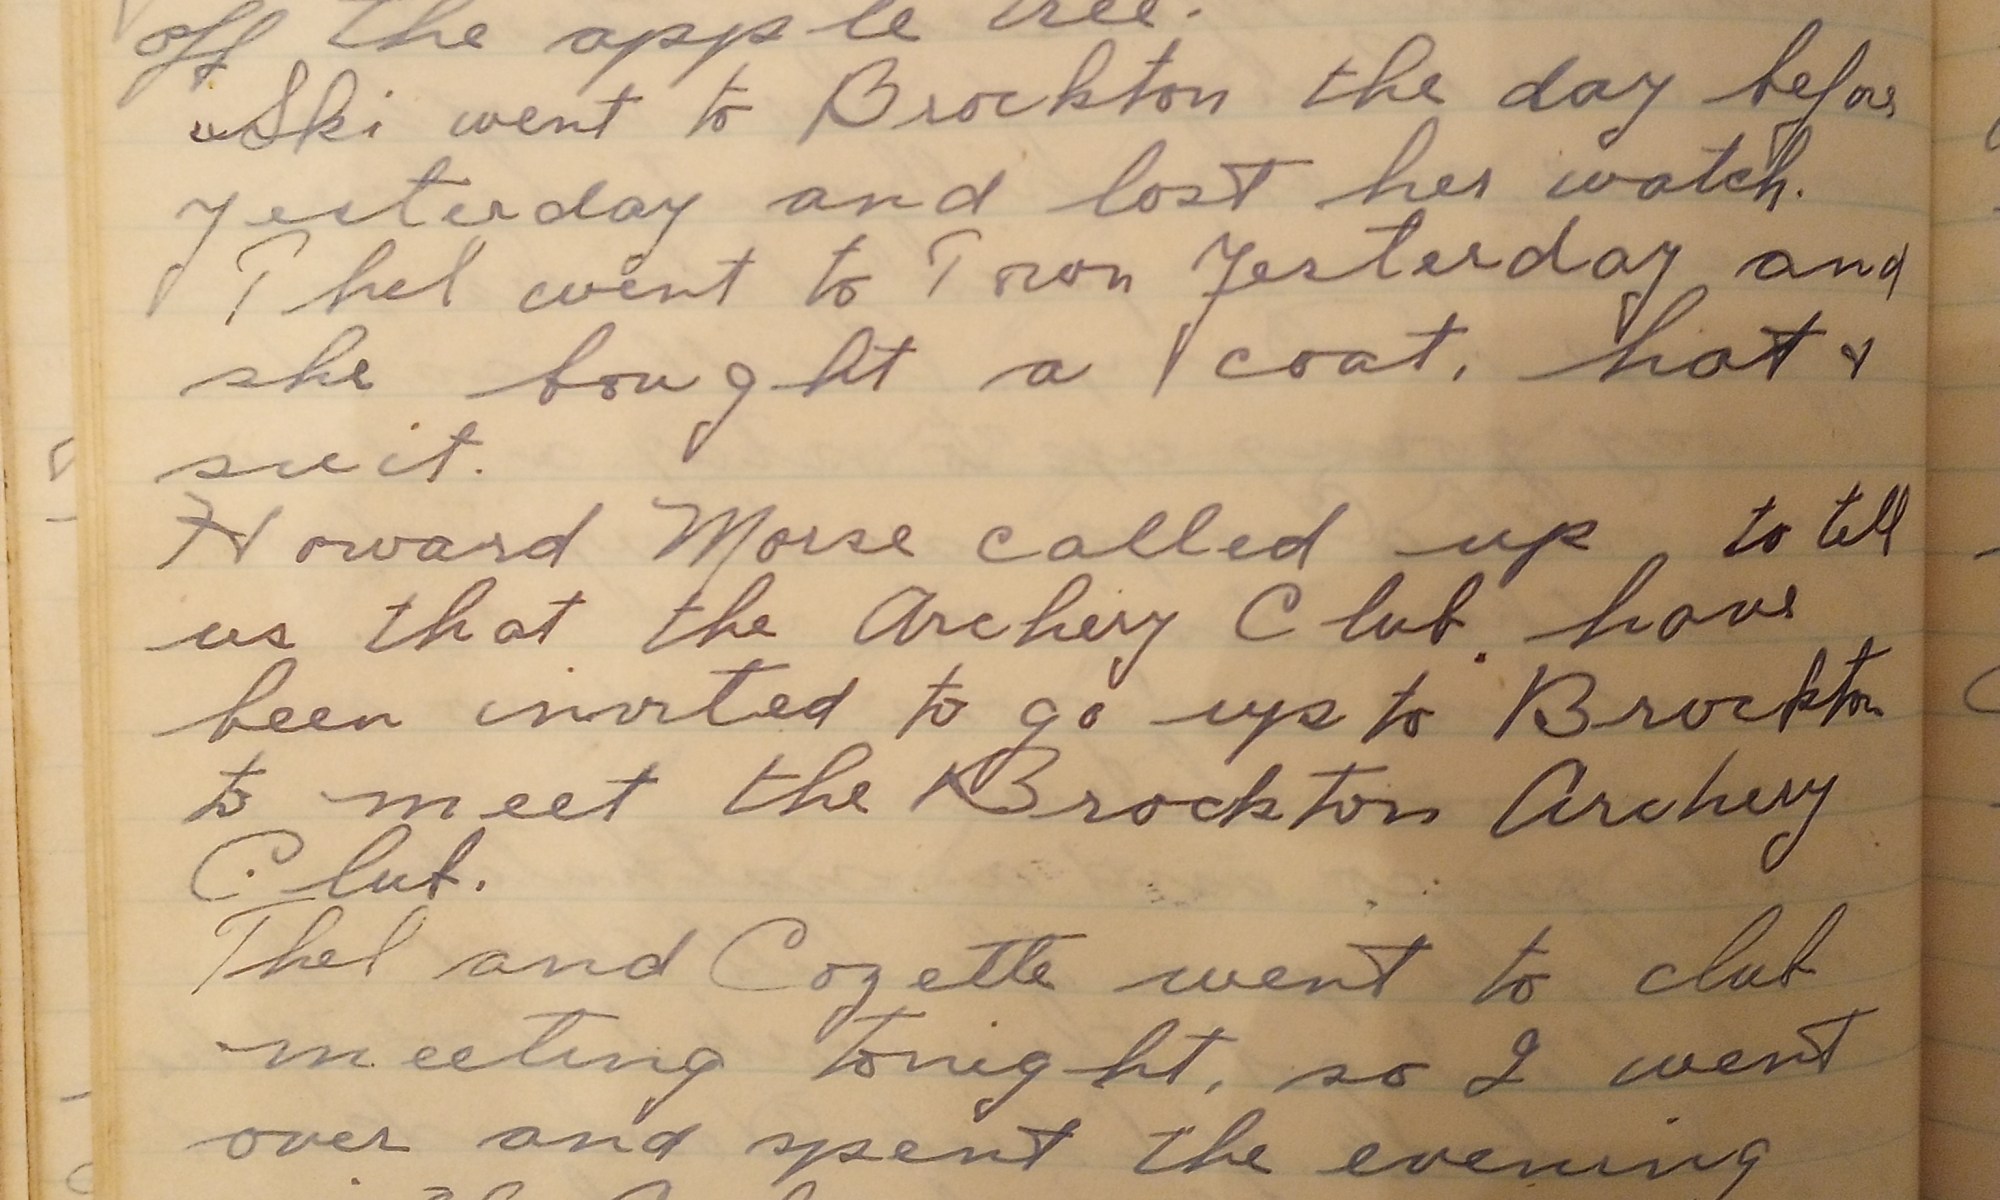 off the apple tree.
Ski went to Brockton the day before
yesterday and lost her watch.
Thel went to Town Yesterday and
she bought a coat, hat &
suit.
Howard Morse called up to tell
us that the Archery Club have
been invited to go up to Brockton
to meet the Brockton Archery
Club.
Thel and Cozette went to club
meeting tonight, so I went
over and spent the evening